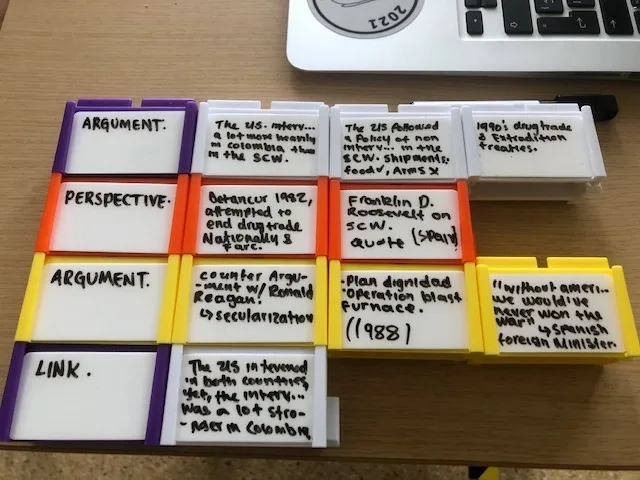 2021
ARGUMENT.
The U.S. interv...
a lot more heavily
in colombia than
in the SCW.
The US followed
a Policy of non
interv... in the
SCW. shipments:
food✓, Arms X
1990's drug trade
& Extradition
treaties.
PERSPECTIVE.
Betancur 1982,
attempted to
end drug trade
Nationally &
Farc.
Franklin D.
Roosevelt on
SCW.
Quote (Spain)
ARGUMENT.
counter Argu-
-ment w/ Ronald
Reagan!
↳ secularization
-Plan dignidad
-Operation blast
furnace.
(1988)
"without ameri...
we would've
never won the
war"
↳ Spanish
foreign Minister.
LINK.
The US intevened
in both countries,
yet, the interv...
was a lot stro-
-nger in Colombia